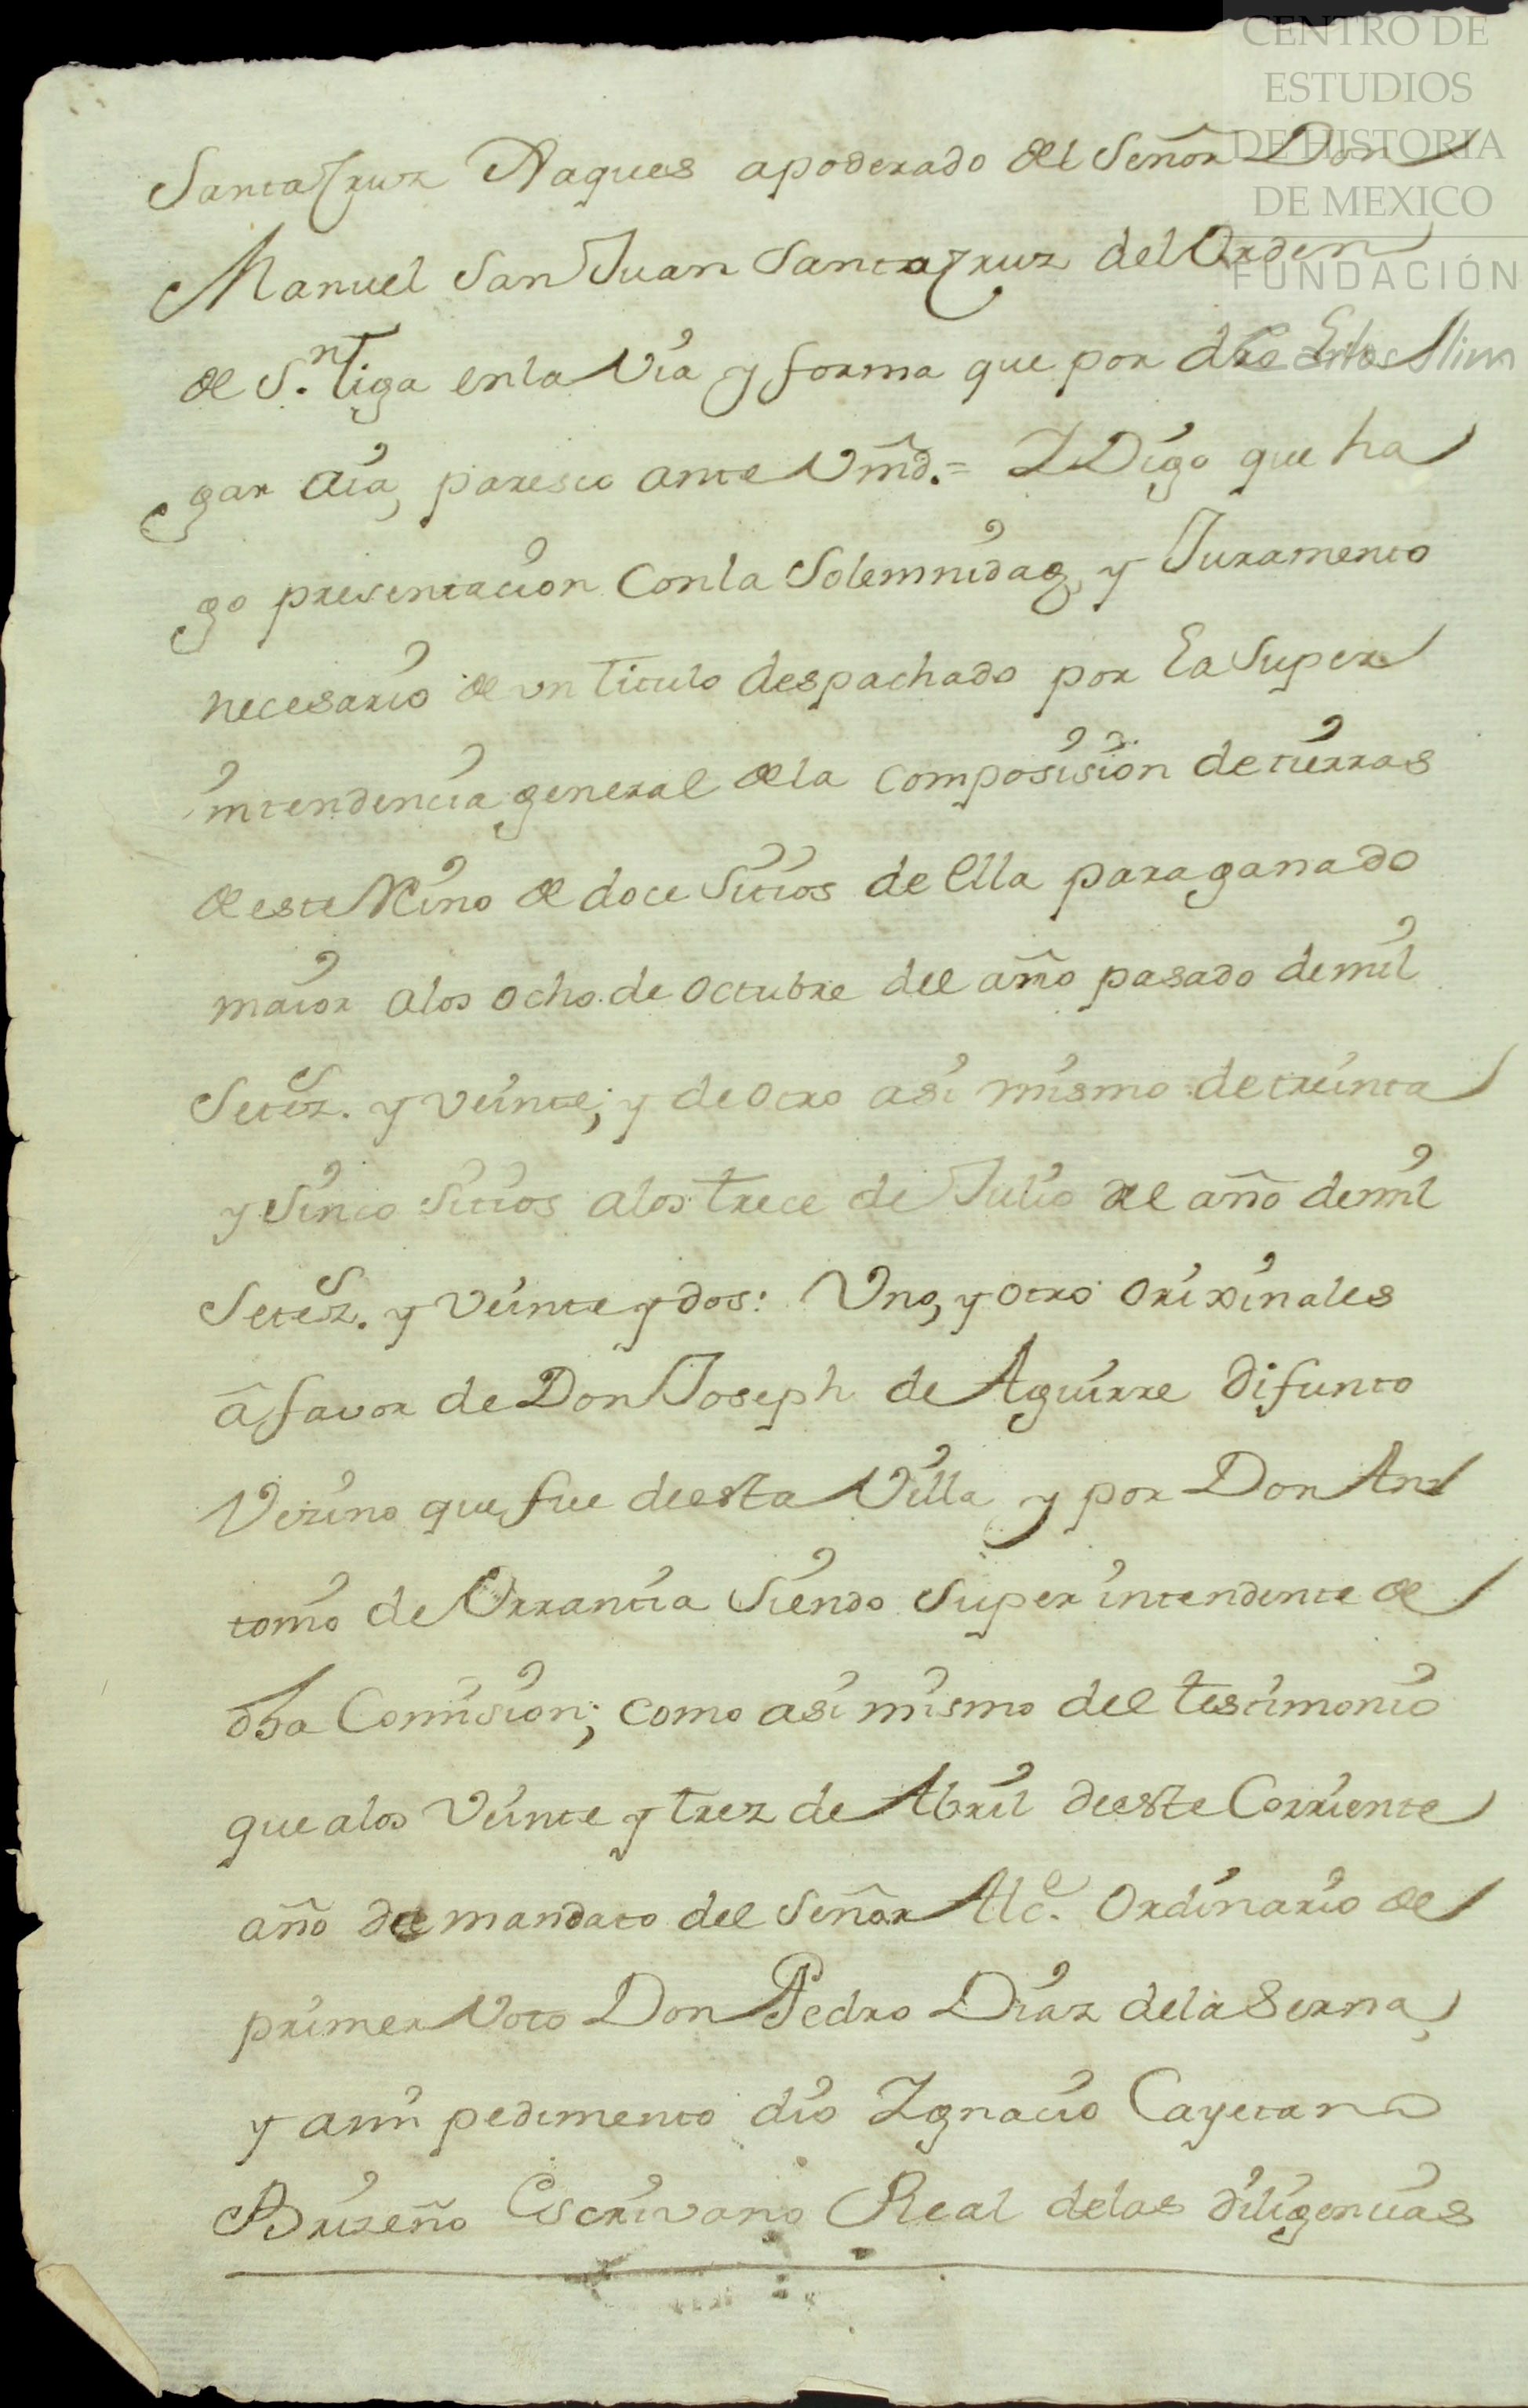 CENTRO DE
ESTUDIOS
DE HISTORIA
DE MEXICO
FUNDACIÓN
Carlos Slim
SantaCruz Naques apoderado del Señor Don
Manuel San Juan SantaCruz del Orden
de S.ntiga en la Via y forma que por dro
gar aia, paresco ante Vmd.= Y Digo que ha
go presentacion Con la Solemnidad, y Juramento
necesario de vn titulo despachado por La Super
intendencia general de la composision de tierras
de este Reino de doce Sitios de ella para ganado
maior a los ocho de octubre del año pasado de mil
Setez.s y veinte; y de otro asi mismo de treinta
y sinco sitios a los trece de Julio del año de mil
Setez.s y veinte y dos: Uno, y otro orixinales
â favor de Don Joseph de Aguirre difunto
Vezino que fue de esta Villa y por Don An
tonio de Orrantia Siendo Super intendente de
dha Comision; como asi mismo del testimonio
que a los Veinte y trez de Abril de este Corriente
año de mandato del Señor Alc.e Ordinario de
primer Voto Don Pedro Diaz de la Serna,
y a mi pedimento dio Ignacio Cayetano
Brizeño Escrivano Real de las diligencias